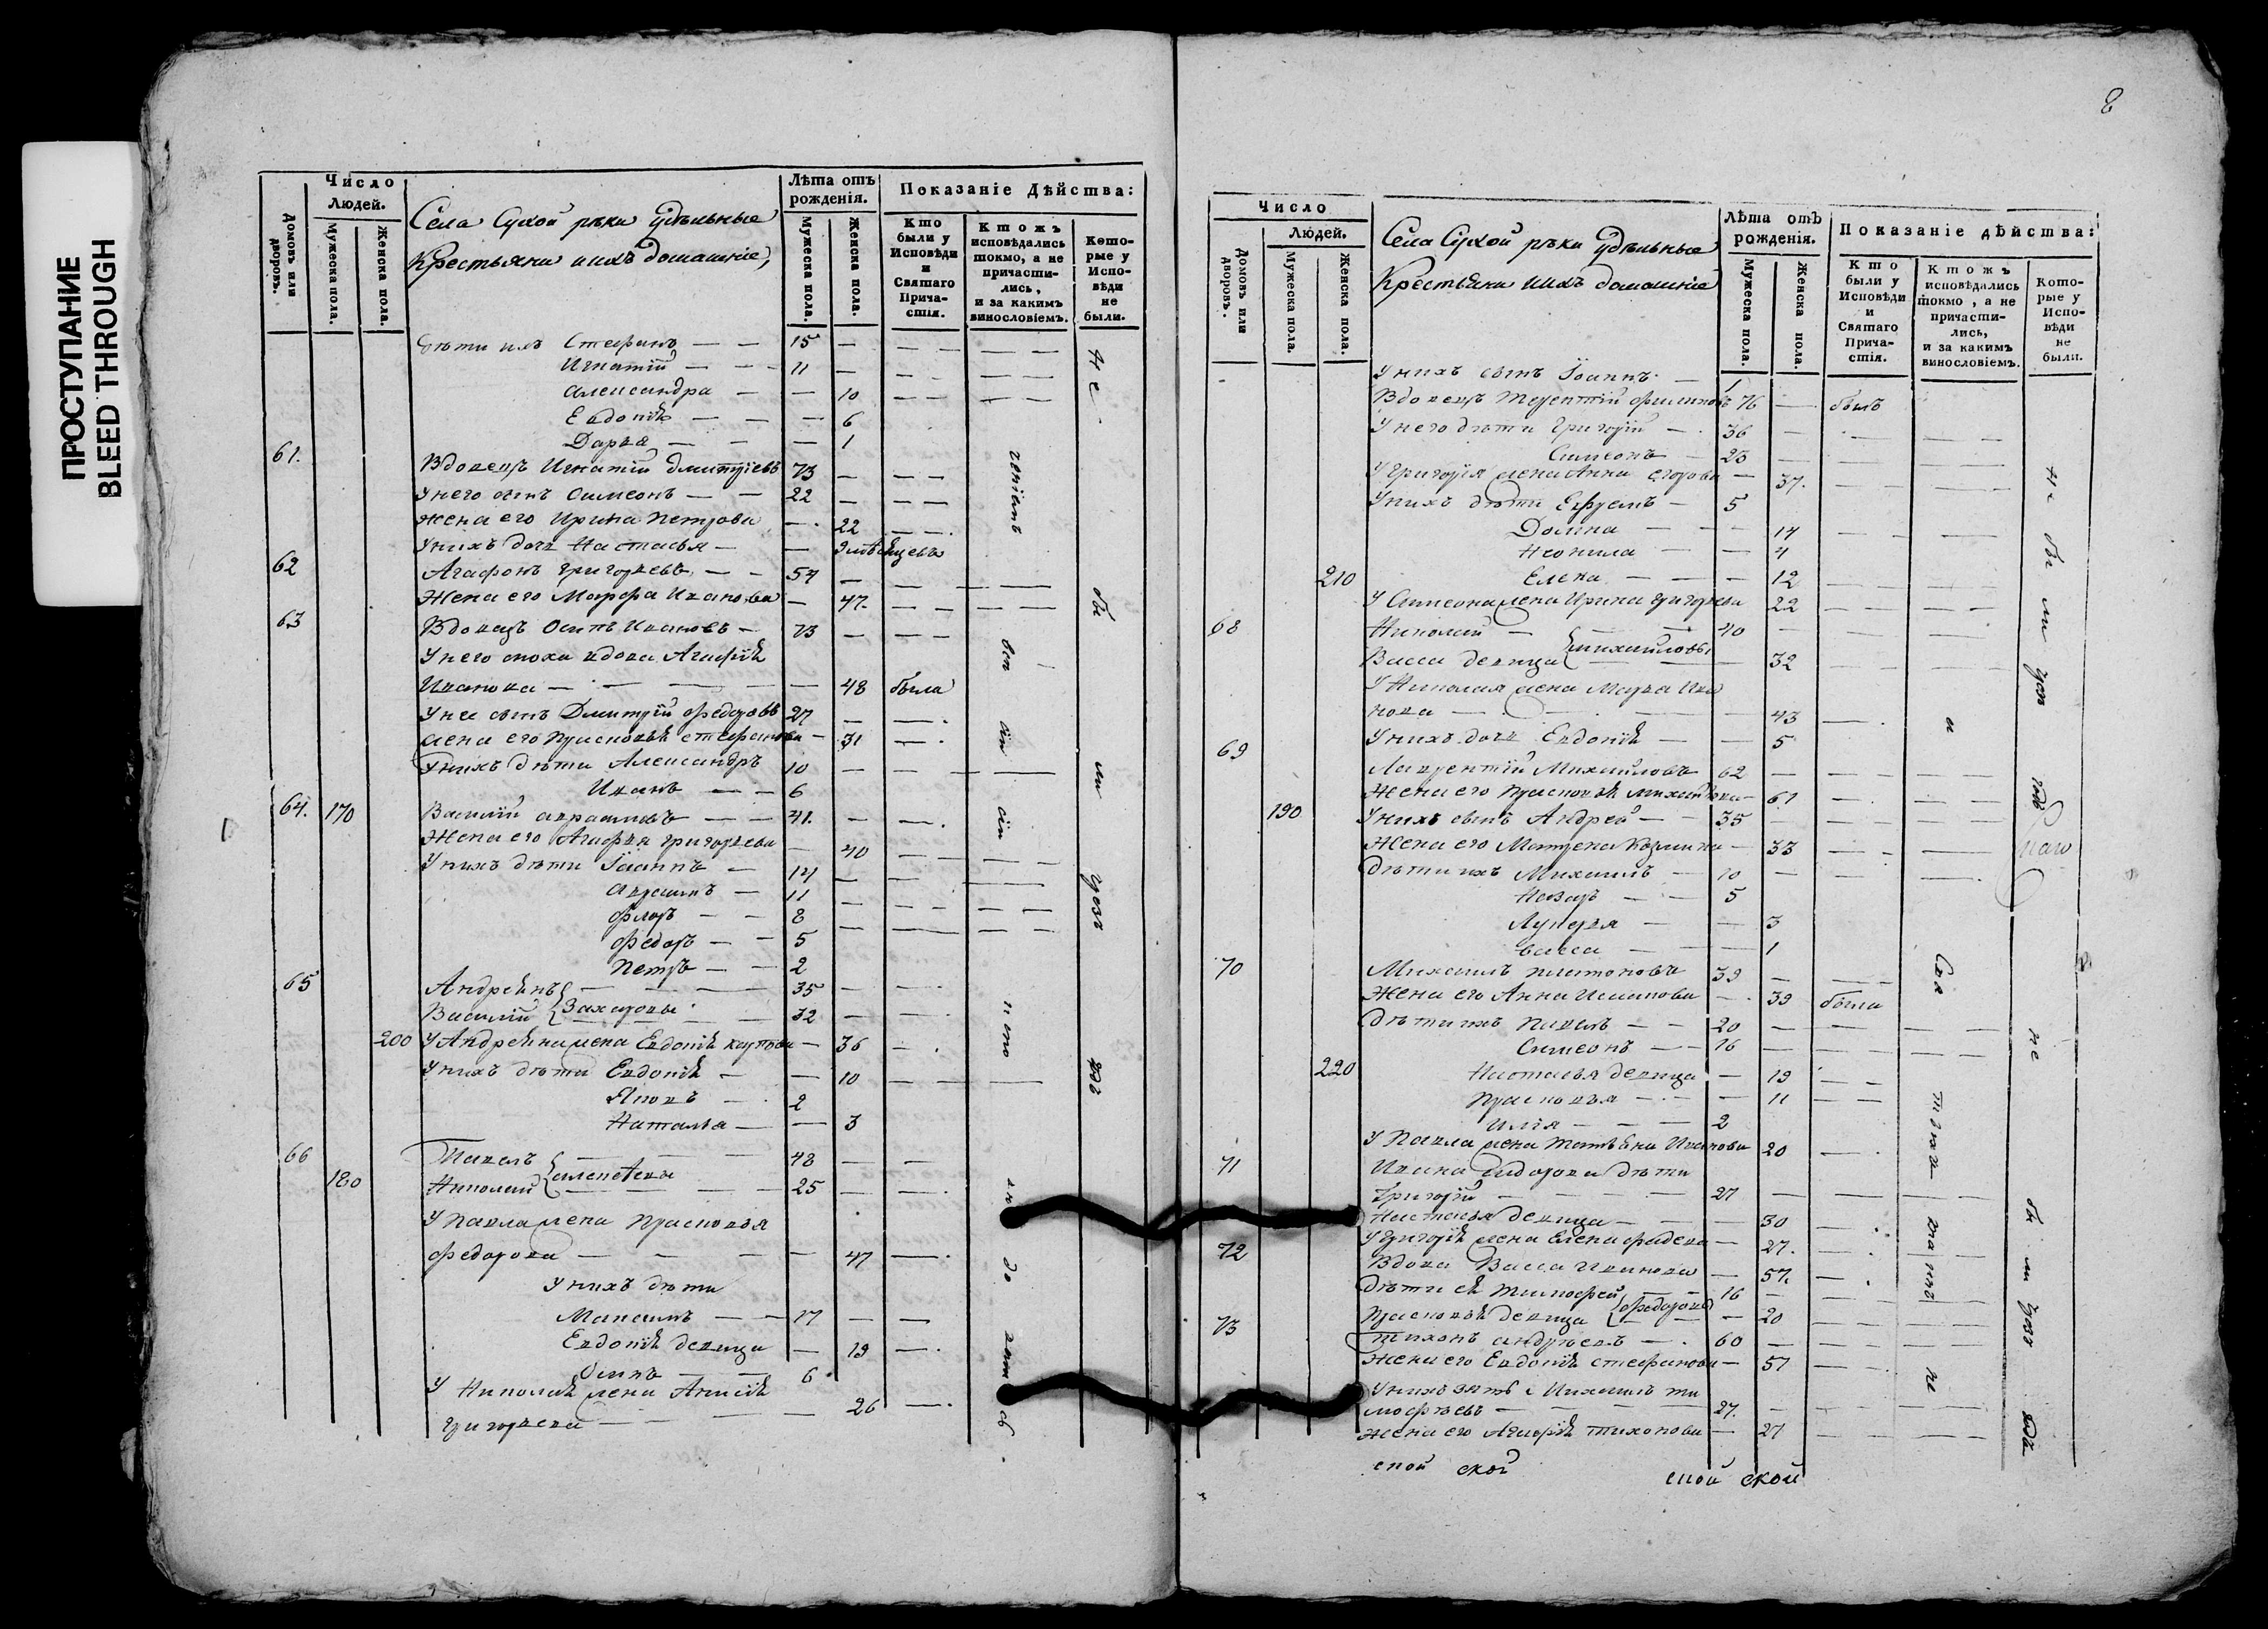 ПРОСТУПАНИЕ
BLEED THROUGH
Число
Людей.
Домовъ или дворовъ.
Мужеска пола.
Женска пола.
Села Сухой рѣки удѣльные
Крестьяни и ихъ домашніе,
Лѣта отъ рожденія.
Мужеска пола.
Женска пола.
Показаніе Дѣйства:
Кто были у Исповѣди и Святаго Прича-стія.
Ктожъ исповѣдались токмо, а не причасти-лись, и за какимъ винословіемъ.
Кото-рые у Испо-вѣди не были.
дѣти ихъ Стефанъ — — 15 —
Игнатій — — 11 —
Александра — — 10
Евдокія — — 6
Дарья — — 1
61. Вдовецъ Игнатій Дмитріевъ 73 —
У него сынъ Симеонъ — — 22 —
Жена его Ирина Петрова — 22
У нихъ дочь Настасья — — 9 мѣсяцевъ
62 Агафонъ Григорьевъ — — 54 —
Жена его Марфа Иванова — 47.
63 Вдовецъ Осипъ Ивановъ — 73 —
У него сноха вдова Агафія
Иванова — — — 48 была
У нея сынъ Дмитрій Федоровъ 27 —
жена его Прасковья Стефанова — 31
У нихъ дѣти Александръ 10 —
Иванъ — — 6
64. 170 Василій Аврамовъ — — 41. —
Жена его Агафья Григорьева — 40
У нихъ дѣти Іоаннъ — 14 —
Аврамъ — 11 —
Флоръ — — 8 —
Федоръ — — 5 —
Петръ — — 2
65 Андреянъ — — 35 —
Василій Захаровы — 32 —
200 У Андреяна жена Евдокія Карпова — 36
У нихъ дѣти Евдокія — — 10
Яковъ — 2
Наталья — — 3
66 Павелъ — — 48 —
180 Николай Алексѣевы — 25 —
У Павла жена Прасковья
Федорова — — — 47
У нихъ дѣти
Максимъ — — 17 —
Евдокія девица — 19
Осипъ — — 6
У Николая жена Анисія 26
Григорьева —
8
Число
Людей.
Домовъ или дворовъ.
Мужеска пола.
Женска пола.
Села Сухой рѣки удѣльные
Крестьяни и ихъ домашніе
Лѣта отъ рожденія.
Мужеска пола.
Женска пола.
Показаніе дѣйства:
Кто были у Исповѣди и Святаго Прича-стія.
Ктожъ исповѣдались токмо, а не причасти-лись, и за какимъ винословіемъ.
Кото-рые у Испо-вѣди не были.
У нихъ сынъ Іоаннъ — 1
Вдовецъ Терентій Филиповъ 76 — былъ
У него дѣти Григорій — 36 —
Симеонъ — 23 —
У Григорія жена Анна Егорова — 37.
У нихъ дѣти Ефремъ — 5
Домна — — 14
Неонила — — 4
210 Елена — — 12
У Симеона жена Ирина Григорьева 22
68 Николай — — 40 —
Васса девица Михайловы — 32
У Николая жена Марѳа Ива
нова — — — 43
У нихъ дочь Евдокія — — 5
69 Лаврентій Михайловъ 62 —
Жена его Прасковья Михайлова — 61
190 У нихъ сынъ Андрей — — 35 —
Жена его Матрена Козмина — 33
Дѣти ихъ Михаилъ — 10 —
Назаръ — — 5
Лукерья — — 3
Васса — — 1
70 Михаилъ Платоновъ 39 —
Жена его Анна Исаакова — 39 была
Дѣти ихъ Павелъ — — 20 —
Симеонъ — — 16 —
220 Настасья девица — 19
Прасковья — — 11
Илья — — 2
У Павла жена Татьяна Иванова 20
71 Ивана Сидорова дѣти
Григорій — — 27 —
Настасья девица — — 30
У Григорія жена Елена Фадева — 27.
72 Вдова Васса Иванова — 57.
Дѣти ея Тимофей — 16 —
Прасковья девица Федоровы — 20
73 Тихонъ Андреевъ — 60 —
Жена его Евдокія Стефанова — 57
У нихъ зять Михаилъ Ти
мофеевъ — — 27. —
жена его Агафія Тихонова — 27
ской ской
ской ской